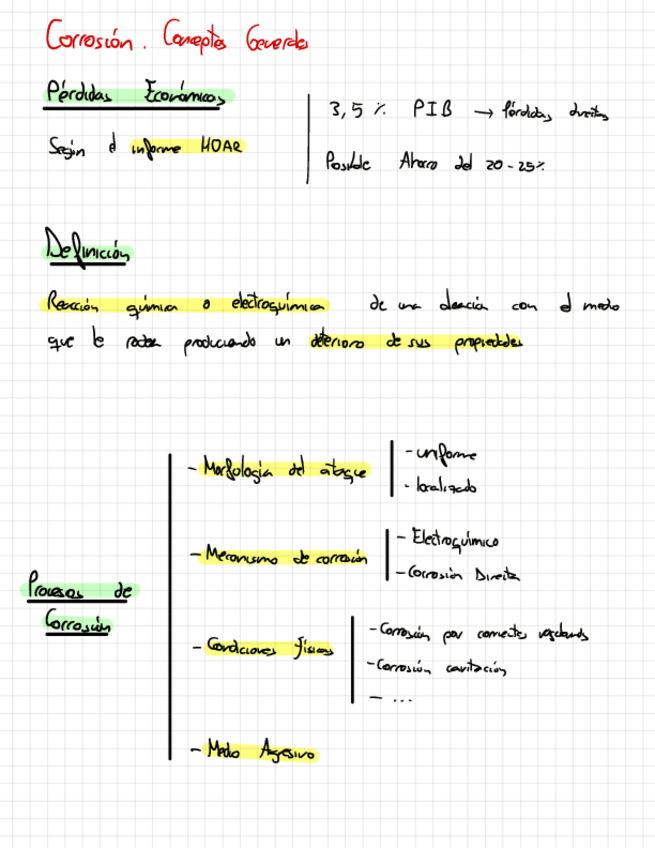 Corrosión. Conceptos Generales
Pérdidas Económicas
Según el informe HOAR
3,5 % PIB → pérdidas directas
Posible Ahorro del 20-25%
Definición
Reacción química o electroquímica de una aleación con el medio
que le rodea produciendo un deterioro de sus propiedades
Procesos de
Corrosión
- Morfología del ataque
- uniforme
- localizado
- Mecanismo de corrosión
- Electroquímico
- Corrosión Directa
- Condiciones físicas
- Corrosión por corrientes vagabundas
- Corrosión cavitación
- ...
- Medio Agresivo